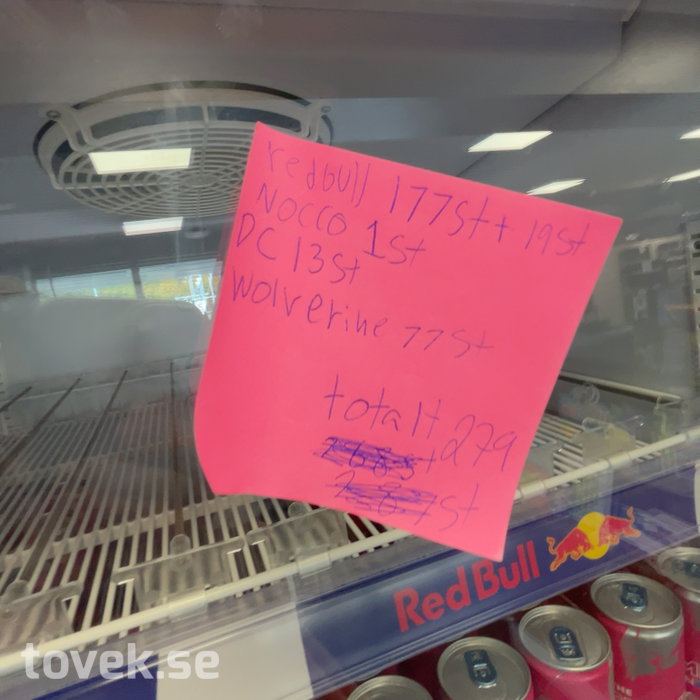 redbull 177st + 19st
NOCCO 1st
DC 13st
Wolverine 77st
totalt 279
st
Red Bull
tovek.se